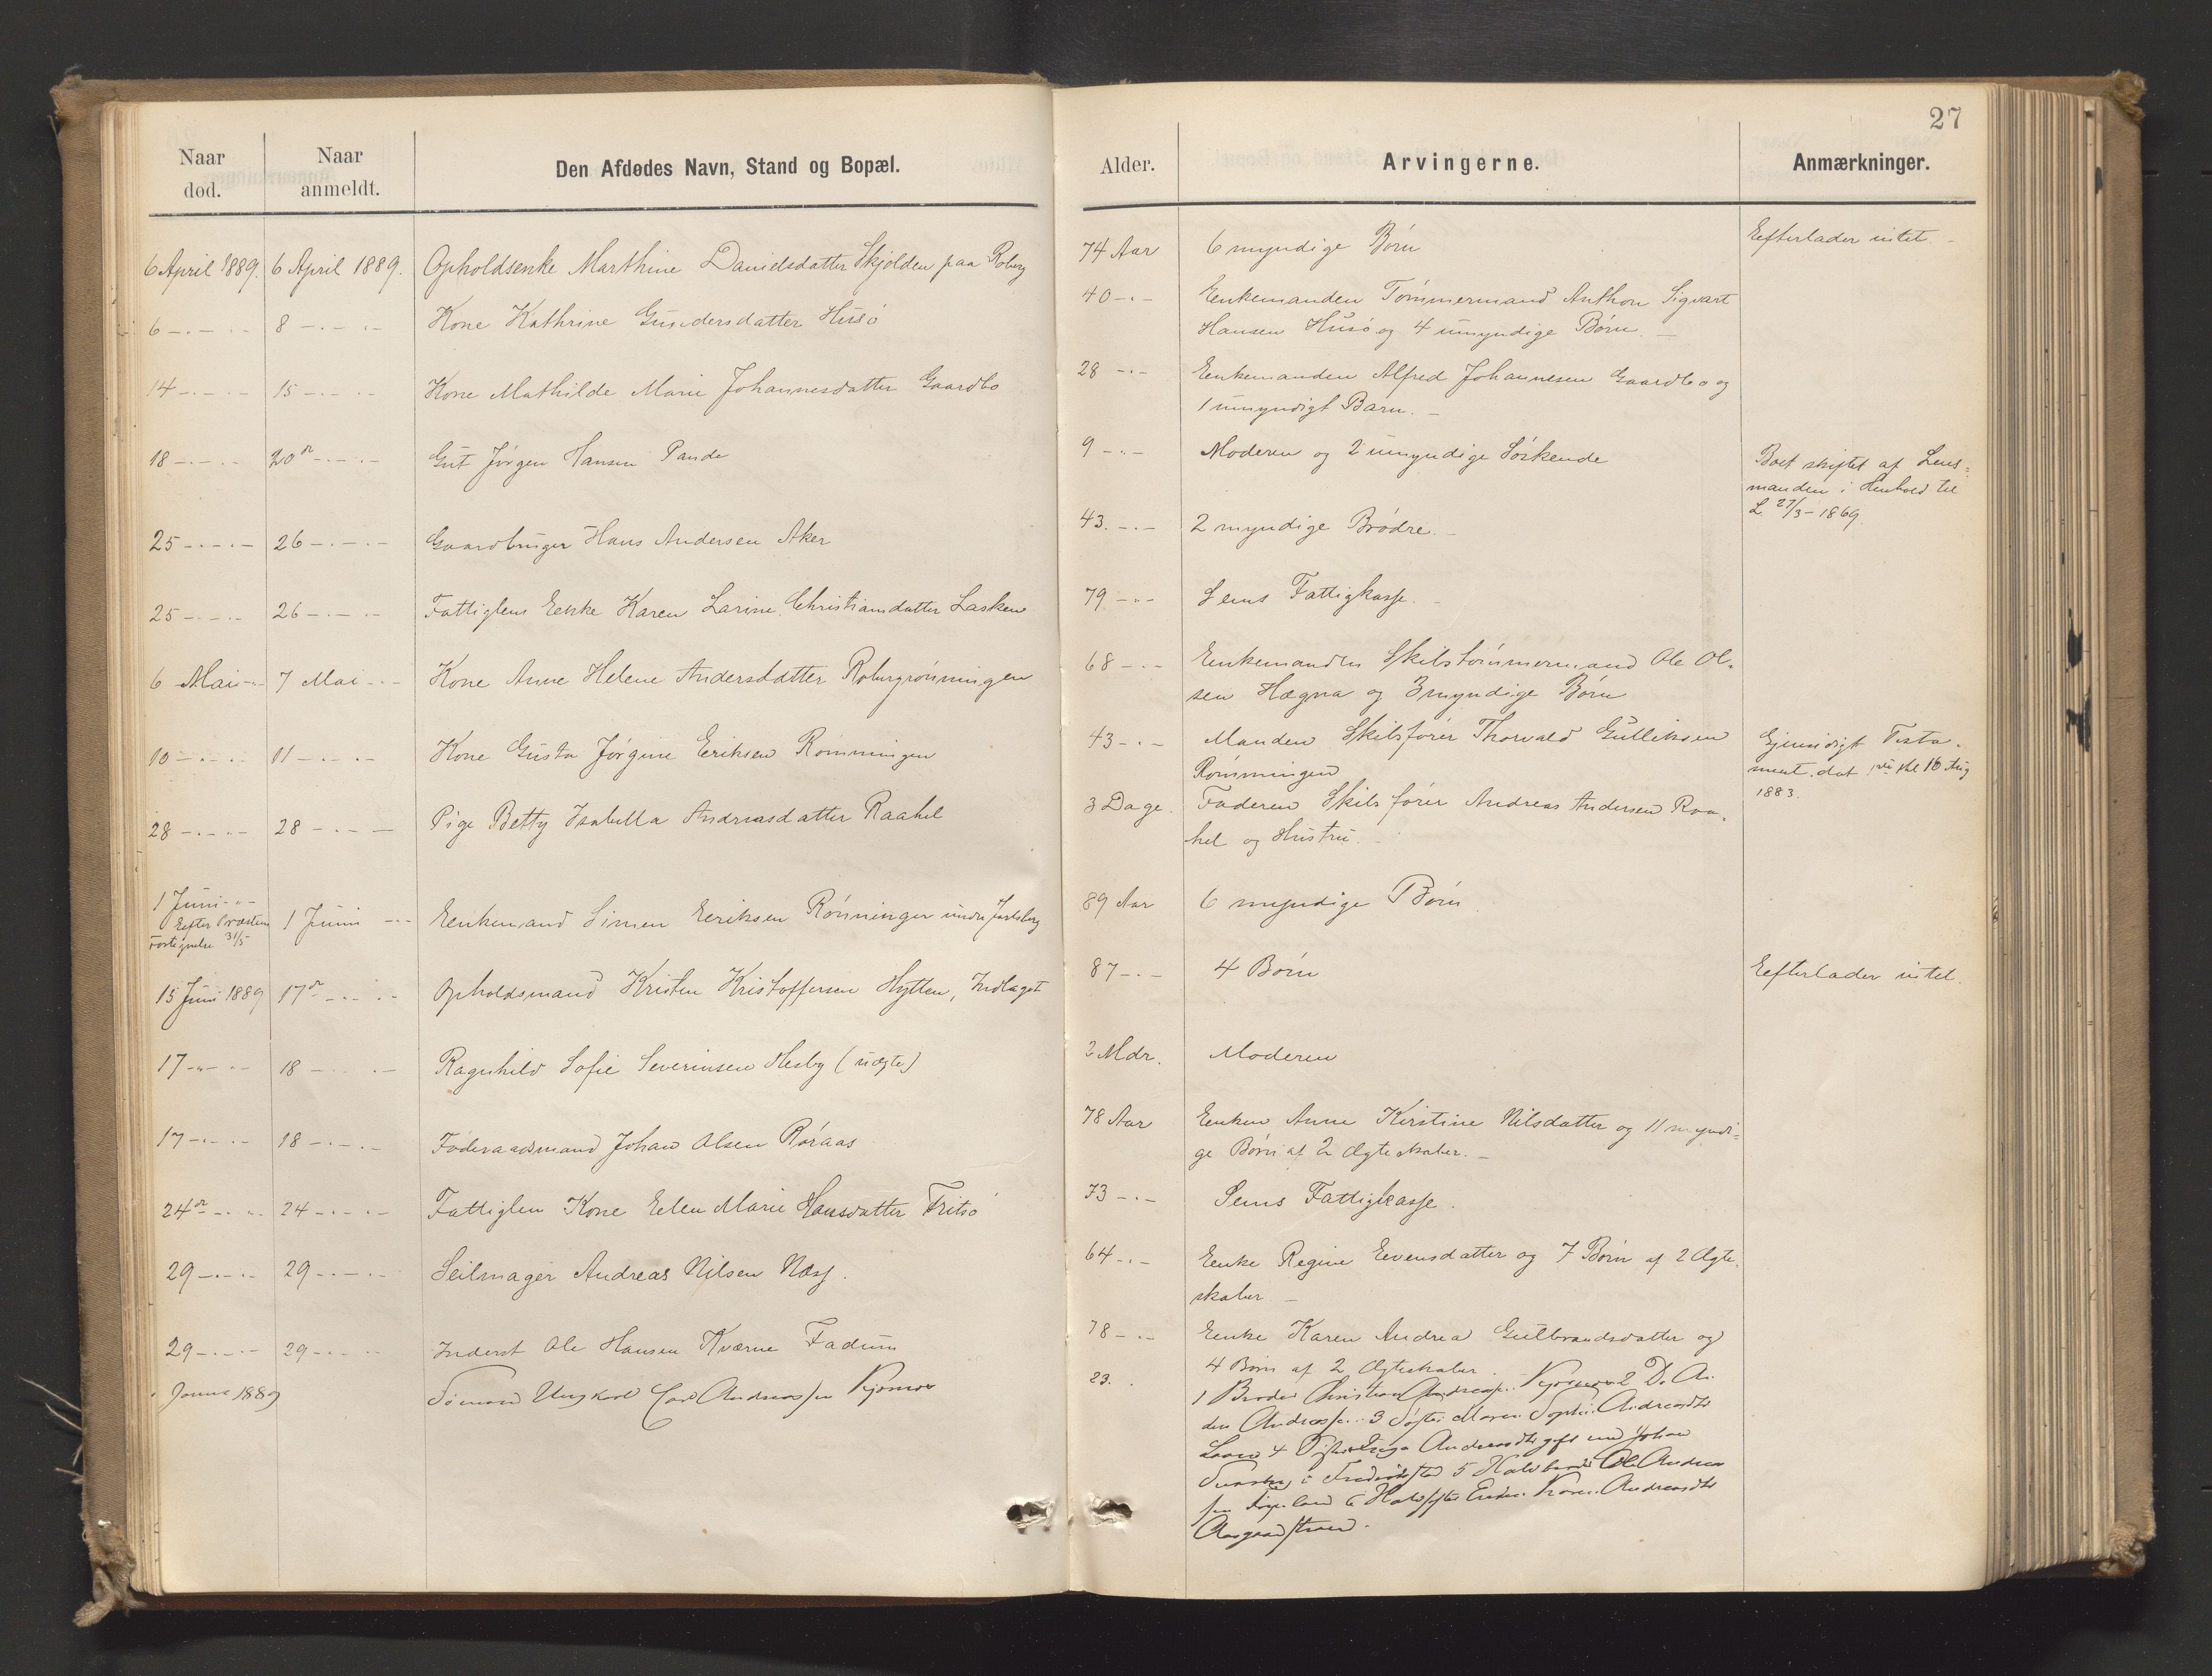 27
Naar død. Naar anmeldt. Den Afdødes Navn, Stand og Bopæl. Alder. Arvingerne. Anmærkninger.
6 April 1889. 6 April 1889. Opholdsenke Marthine Danielsdatter Skjølden paa Roberg 74 Aar 6 myndige Børn Eefterlader intet. -
6 -.- .- 8 -.- .- Kone Kathrine Gundersdatter Husö 40 -.- Enkemanden Tømmermand Anthon Sigvart
Hansen Husö og 4 umyndige Børn. -
14 -.-.- 15 -.- .- Kone Mathilde Marie Johannesdatter Gaardbo 28 -.- Enkemanden Alfred Johannesen Gaardbo og
1 umyndigt Barn. -
18 -.- .- 20de -.- .- Gut Jørgen Hansen Pande 9 -.- Moderen og 2 umyndige Søskende
Boet skiftet af Lens=
manden i Henhold til
L 27/3 - 1869.
25 -.-.- 26 -.-.- Gaardbruger Hans Andersen Aker 43. -.- 2 myndige Brødre. -
25 -.-.- 26 -.- .- Fattiglem Enke Karen Larine Christiansdatter Lasken 79 -.- Sems Fattigkasse. -
6 Mai -.- 7 Mai -.- Kone Anne Helene Andersdatter Robergrønningen 68 -.- Enkemanden Skibstømmermand Ole Ol-
sen Hegna og 3 myndige Børn
10 -.- .- 11 -.- .- Kone Gusta Jørgine Eeriksen Rønningen 43 -.- Manden Skibsfører Thorvald Gulliksen
Rønningen
Gjensidigt Testa-
ment. dat. 16 Aug
1883.
28 -.- .- 28 -.- - Pige Betty Isabella Andreasdatter Raahel 3 Dage. Faderen Skibsfører Andreas Andersen Raa-
hel og Hustru. -
1 Juni -.-
Eefter Præstens
Fortegnelse 31/5
1 Juni -.- Enkemand Simen Eeriksen Rønningen under Jarlsberg 89 Aar 6 myndige Børn
15 Juni 1889 17de -.- .- Opholdsmand Kristen Kristoffersen Hytten, Indlaget 87 -.- 4 Børn Eefterlader intet.
17 -.- .- 18 -.- .- Ragnhild Sofie Severinsen Hesby (uægte) 2 Mdr. Moderen
17 -.- .- 18 -.- .- Føderaadsmand Johan Olsen Røraas 78 Aar Enken Anne Kirstine Nilsdatter og 11 myndi=
ge Børn af 2 Ægteskaber. -
24de -.- .- 24 -.-.- Fattiglem Kone Eelen Marie Hansdatter Fritsö 73 -.- Sems Fattigkasse.
29 -.- .- 29 -.-.- Seilmager Andreas Nilsen Næss. 64 -.- Enke Regine Eevensdatter og 7 Børn af 2 Ægte-
skaber -
29 -.- .- 29 -.- .- Inderst Ole Hansen Kværne Fadum 78 -.- Enke Karen Andrea Gulbrandsdatter og
4 Børn af 2 Ægteskaber.
Januar 1889 Sømand Ungkarl Carl Andreassen 23. 1 Broder Christian Andreassen 2 D. An
Andreassen 3 Søster Maren Sophie Andreasdtr
4 Søster Andreasdtr gift med Johan
i Fredrikstad 5 Halvbroder Ole Andreas
sen 6 Halvsøster Karen Andreasdtr
Aasgaardstrand.